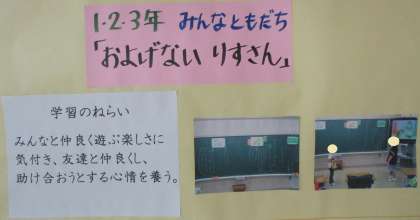 1・2・3年 みんなともだち
「およげない りすさん」
学習のねらい
みんなと仲良く遊ぶ楽しさに
気付き、友達と仲良くし、
助け合おうとする心情を養う。